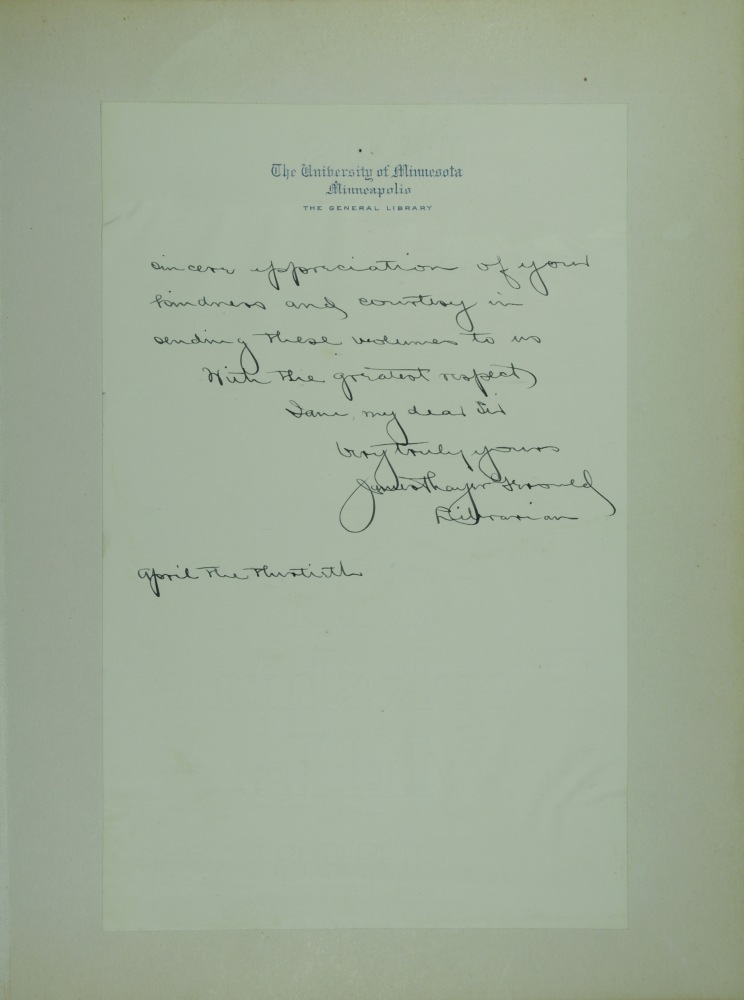 The University of Minnesota
Minneapolis
THE GENERAL LIBRARY
sincere appreciation of your
kindness and courtesy in
sending these volumes to us
With the greatest respect,
I am, my dear Sir
Very truly yours
James Thayer Gerould
Librarian
April the thirtieth